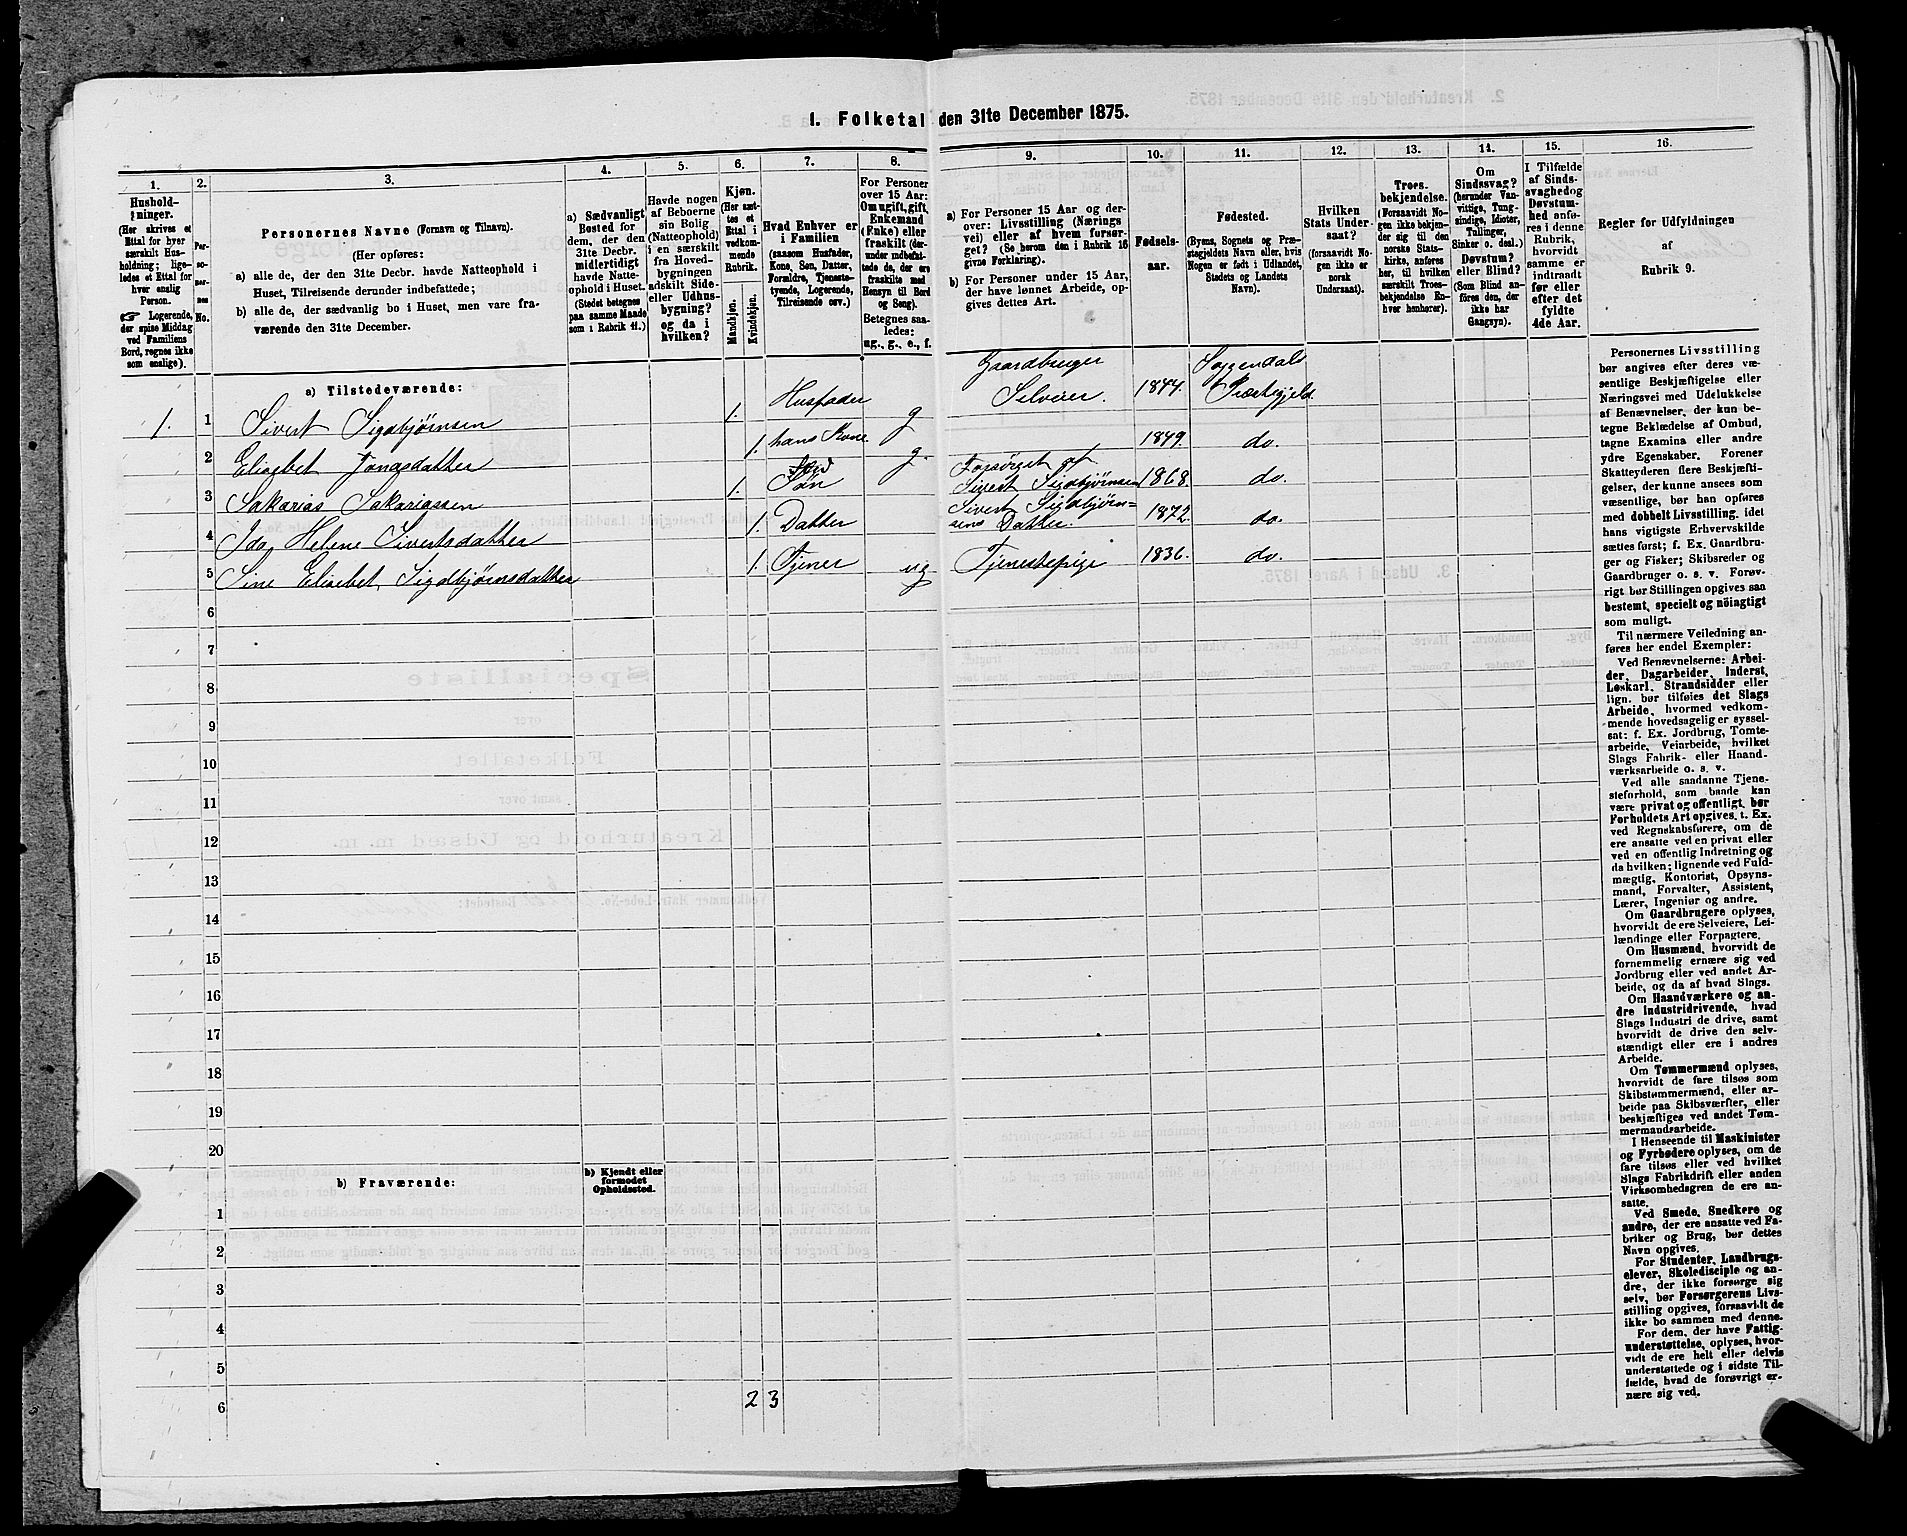 1. Folketal den 31te December 1875.
1. 2. 3. 4. 5. 6. 7. 8. 9. 10. 11. 12. 13. 14. 15. 16.
Hushold-
ninger.
(Her skrives et
Ettal for hver
særskilt Hus-
holdning; lige-
ledes et Ettal for
hver enslig
Person.
☞ Logerende,
der spise Middag
ved Familiens
Bord, regnes ikke
som enslige).
Per-
so-
ner-
nes
No.
Personernes Navne (Fornavn og Tilnavn).
(Her opføres:
a) alle de, der den 31te Decbr. havde Natteophold i
Huset, Tilreisende derunder indbefattede;
b) alle de, der sædvanlig bo i Huset, men vare fra-
værende den 31te December.
a) Sædvanligt
Bosted for
dem, der den
31te Decbr.
midlertidigt
havde Natte-
ophold i Huset.
(Stedet betegnes
paa samme Maade
som i Rubrik 11.)
Havde nogen
af Beboerne
sin Bolig
(Natteophold)
i en særskilt
fra Hoved-
bygningen
adskilt Side-
eller Udhus-
bygning?
og da i
hvilken?
Kjøn.
(Her sæt-
tes et
Ettal i
vedkom-
mende
Rubrik.
Mandkjøn.
Kvindekjøn.
Hvad Enhver er
i Familien
(saasom Husfader,
Kone, Søn, Datter,
Forældre, Tjeneste-
tyende, Logerende,
Tilreisende osv.)
For Personer
over 15 Aar:
Om ugift, gift,
Enkemand
(Enke) eller
fraskilt (der-
under indbefat-
tede de, der ere
fraskilte med
Hensyn til Bord
og Seng).
Betegnes saa-
ledes:
ug., g., e., f.
a) For Personer 15 Aar og der-
over: Livsstilling (Nærings
vei) eller af hvem forsør-
get? (Se herom den i Rubrik 16
givne Forklaring).
b) For Personer under 15 Aar,
der have lønnet Arbeide, op-
gives dettes Art.
Fødsels-
aar.
Fødested.
(Byens, Sognets og Præ-
stegjeldets Navn eller, hvis
Nogen er født i Udlandet,
Stedets og Landets
Navn).
Hvilken
Stats Under-
saat?
(forsaavidt No-
gen ikke er
norsk
Undersaat).
Troes-
bekjendelse.
(Forsaavidt No-
gen ikke bekjen-
der sig til den
norske Stats-
kirke, anføres
her, til hvilken
særskilt Troes-
bekjendelse En-
hver henhører).
Om
Sindssvag?
(herunder Van-
vittige, Tung-
sindige, Idioter,
Tullinger,
Sinker o. desl.)
Døvstum?
eller Blind?
(Som Blind an-
føres den, der
ikke har
Gangsyn).
I Tilfælde
af Sinds-
svaghed og
Døvstum-
hed anfø-
res i denne
Rubrik,
hvorvidt
samme er
indtraadt
før eller
efter det
fyldte
4de Aar.
Regler for Udfyldningen
af
Rubrik 9.
a) Tilstedeværende:
Gaardbruger Soggendals
1. 1 Sivert Sigbjørnsen 1. Husfader g Selveier. 1844. Præstegjeld.
2 Elisebet Jonasdatter 1. hans Kone g. 1849. do.
3 Sakarias Sakariassen 1. Søn Forsørget af Sivert Sigbjørnsen 1868. do.
4 Ida Helene Sivertsdatter 1. Datter Sivert Sigbjørn=
sens Datter. 1872. do.
5 Sine Elisebet Sigbjørnsdatter 1. Tjener ug Tjenestepige 1836. do.
6
7
8
9
10
11
12
13
14
15
16
17
18
19
20
b) Fraværende:
b) Kjendt eller
formodet
Opholdssted.
1
2
3
4
5
6
2 3
Personernes Livsstilling
bør angives efter deres væ-
sentlige Beskjæftigelse eller
Næringsvei med Udelukkelse
af Benævnelser, der kun be-
tegne Beklædelse af Ombud,
tagne Examina eller andre
ydre Egenskaber. Forener
Skatteyderen flere Beskjæfti-
gelser, der kunne ansees som
væsentlige, bør han opføres
med dobbelt Livsstilling, idet
hans vigtigste Erhvervskilde
sættes først; f. Ex. Gaardbru-
ger og Fisker; Skibsreder og
Gaardbruger o. s. v. Forøv-
rigt bør Stillingen opgives saa
bestemt, specielt og nøiagtigt
som muligt.
Til nærmere Veiledning an-
føres her endel Exempler:
Ved Benævnelserne: Arbei-
der, Dagarbeider, Inderst,
Løskarl, Strandsidder eller
lign. bør tilføies det Slags
Arbeide, hvormed vedkom-
mende hovedsagelig er syssel-
sat: f. Ex. Jordbrug, Tomte-
arbeide, Veiarbeide, hvilket
Slags Fabrik- eller Haand-
værksarbeide o. s. v.
Ved alle saadanne Tjene-
steforhold, som baade kan
være privat og offentligt, bør
Forholdets Art opgives, t. Ex.
ved Regnskabsførere, om de
ere ansatte ved en privat eller
ved en offentlig Indretning og
da hvilken; lignende ved Fuld-
mægtig, Kontorist, Opsyns-
mand, Forvalter, Assistent,
Lærer, Ingeniør og andre.
Om Gaardbrugere oplyses,
hvorvidt de ere Selveiere, Lei-
lændinge eller Forpagtere.
Om Husmænd, hvorvidt de
fornemmelig ernære sig ved
Jordbrug eller ved andet Ar-
beide, og da af hvad Slags.
Om Haandværkere og an-
dre Industridrivende, hvad
Slags Industri de drive, samt
hvorvidt de drive den selv-
stændigt eller ere i andres
Arbeide.
Om Tømmermænd oplyses,
hvorvidt de fare tilsøs som
Skibstømmermænd, eller ar-
beide paa Skibsværfter, eller
beskjæftiges ved andet Tøm-
mermandsarbeide.
I Henseende til Maskinister
og Fyrbødere oplyses, om de
fare tilsøs eller ved hvilket
Slags Fabrikdrift eller anden
Virksomhedsgren de ere an-
satte.
Ved Smede, Snedkere og
andre, der ere ansatte ved Fa-
briker og Brug, bør dettes
Navn opgives.
For Studenter, Landbrugs-
elever, Skoledisciple og an-
dre, der ikke forsørge sig
selv, bør Forsørgerens Livs-
stilling opgives, forsaavidt de
ikke bo sammen med denne.
For dem, der have Fattig-
understøttelse, oplyses, hvor-
vidt de ere helt eller delvis
understøttede og i sidste Til-
fælde, hvad de forøvrigt er-
nære sig ved.